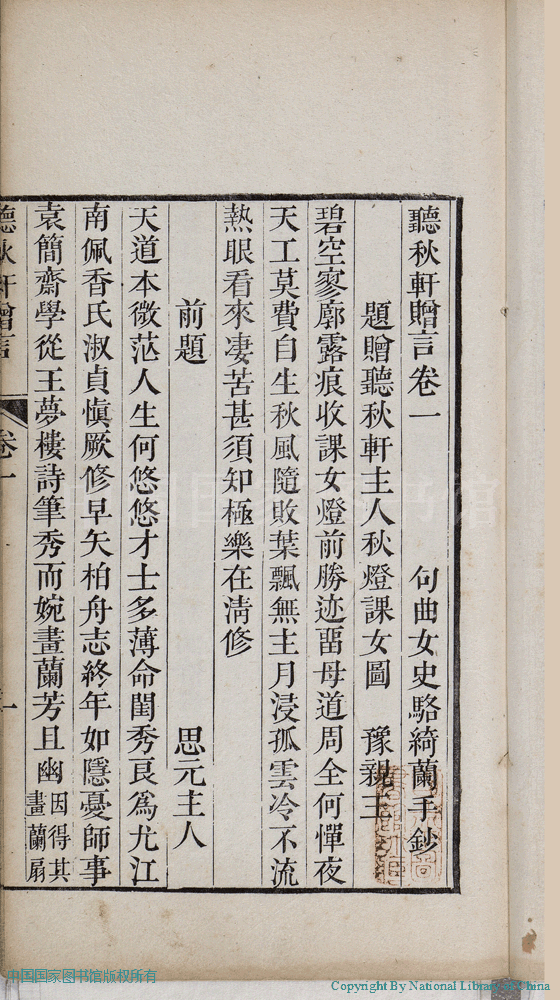 聽秋軒贈言卷一　句曲女史駱綺蘭手鈔
題贈聽秋軒主人秋燈課女圖　豫親王
碧空寥廓露痕收課女燈前勝迹畱母道周全何憚夜
天工莫費自生秋風隨敗葉飄無主月浸孤雲冷不流
熱眼看來凄苦甚須知極樂在清修
前題　思元主人
天道本微茫人生何悠悠才士多薄命閨秀良為尤江
南佩香氏淑貞慎厥修早矢柏舟志終年如隱憂師事
袁簡齋學從王夢樓詩筆秀而婉畫蘭芳且幽因得其
畫蘭扇
聽秋軒贈言
卷一
一
中国国家图书馆版权所有
Copyright By National Library of China